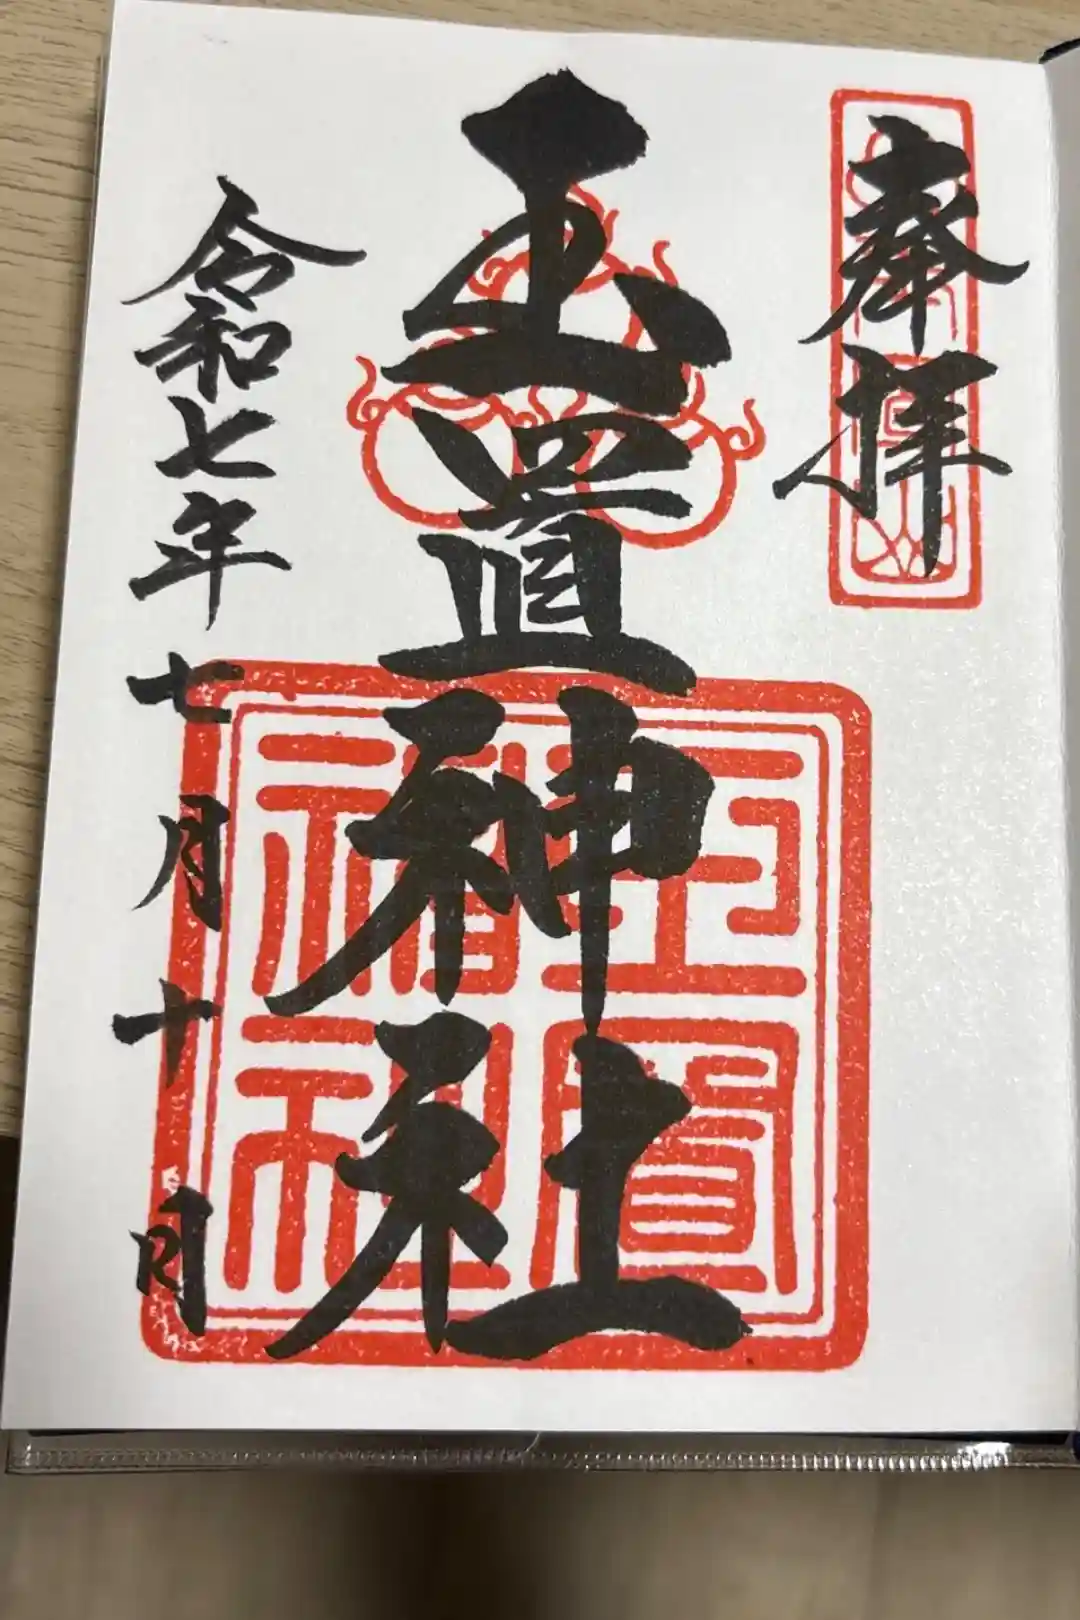 奉拝
玉置神社
玉置神社
令和七年七月十日